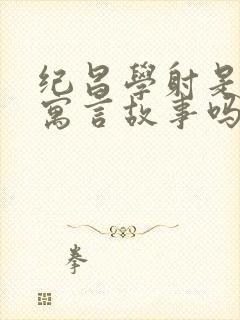 纪昌學射是
寓言故事吗
拳